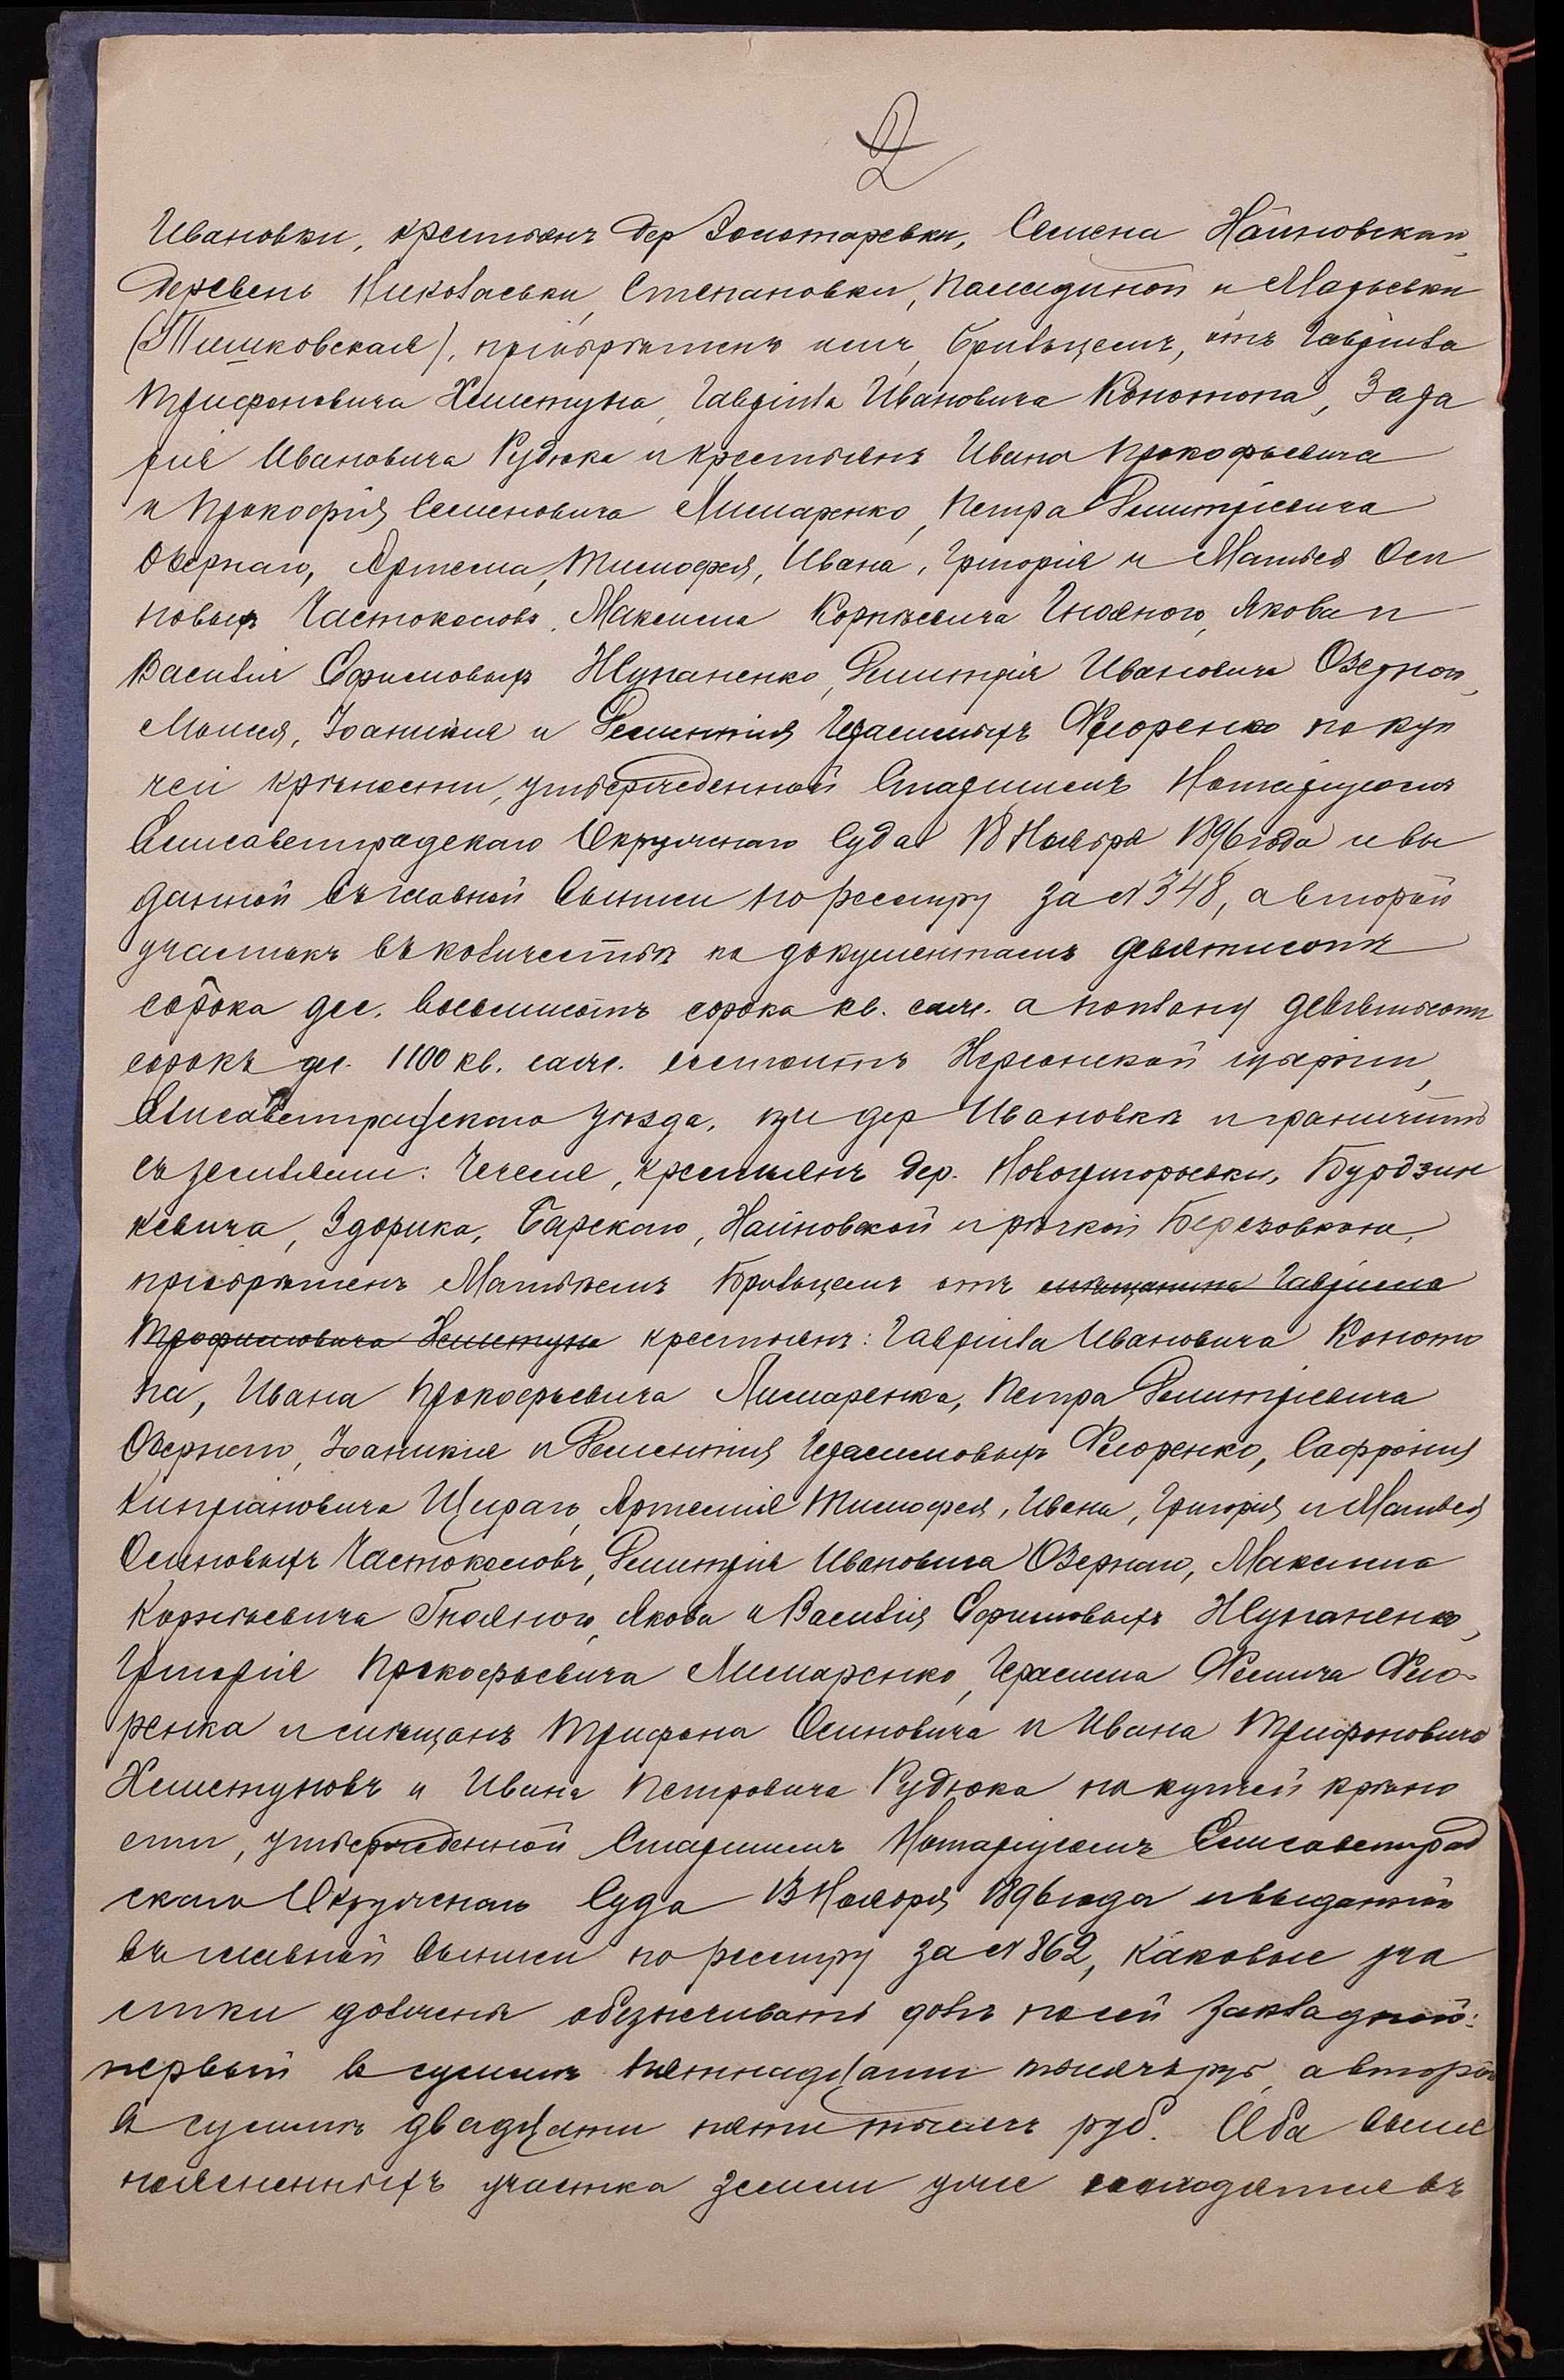 2
Ивановки, крестьянъ дер Золотаревки, Семена Найновскаго
деревень Николаевки, Степановки, Палидиной и Марьевки
(Тишковская), пріобрѣтенъ имъ, Бривцемъ, отъ Гавріила
Трифоновича Хеместуна, Гавріила Ивановича Конотопа, Заха
рія Ивановича Рудюка и крестьянъ Ивана Прокофьевича
и Прокофія Семеновича Лимаренко, Петра Дмитріевича
Озернаго, Артема, Тимофея, Ивана, Григорія и Матвея Оси
повыхъ Частоколовъ, Максима Корнѣевича Гноянаго, Якова и
Василія Ефимовыхъ Жупаненко, Дмитрія Ивановича Озерного,
Моисея, Іоаникія и Дементія Герасимовыхъ Флоренко по куп
чей крѣпости, утвержденной Старшимъ Нотаріусомъ
Елисаветградскаго Окружнаго Суда 18 Ноября 1896 года и вы
данной въ главной выписи по реестру за № 348, а второй
участокъ въ количествѣ по документамъ девятисотъ
сорока дес. восемисотъ сорока кв. саж. а по плану девятьсотъ
сорокъ дес. 1100 кв. саж. состоитъ Херсонской губерніи,
Елисаветградскаго уѣзда, при дер Ивановкѣ и граничитъ
съ землями: Чечеля, крестьянъ дер. Новогригорьевки, Бурдзин
кевича, Здорика, Барскаго, Найновской и рѣчкой Березовкою,
пріобрѣтенъ Матвѣемъ Бривцемъ отъ мѣщанина Гавріила
Трофимовича Хеместуна крестьянъ: Гавріила Ивановича Коното
па, Ивана Прокофьевича Лимаренка, Петра Дмитріевича
Озерного, Іоаникія и Дементія Герасимовыхъ Флоренко, Сафронія
Кипріановича Щираго, Артемія Тимофея, Ивана, Григорія и Матвея
Осиповыхъ Частоколовъ, Дмитрія Ивановича Озернаго, Максима
Корнѣевича Гноянаго, Якова и Василія Ефимовыхъ Жупаненко,
Григорія Прокофьевича Лимаренко, Герасима Фомича Фло-
ренка и мѣщанъ Трифона Осиповича и Ивана Трифоновича
Хеместуновъ и Ивана Петровича Рудюка по купчей крѣпо
сти, утвержденной Старшимъ Нотаріусомъ Елисаветград
скаго Окружнаго Суда 13 Ноября 1896 года и выданной
въ главной выписи по реестру за № 862, каковые уча
стки должны обезпечивать долгъ по сей закладной:
первый въ суммѣ пятнадцати тысячъ руб, а второй
въ суммѣ двадцати пяти тысячъ руб. Оба выше
поясненныхъ участка земли уже находятся въ